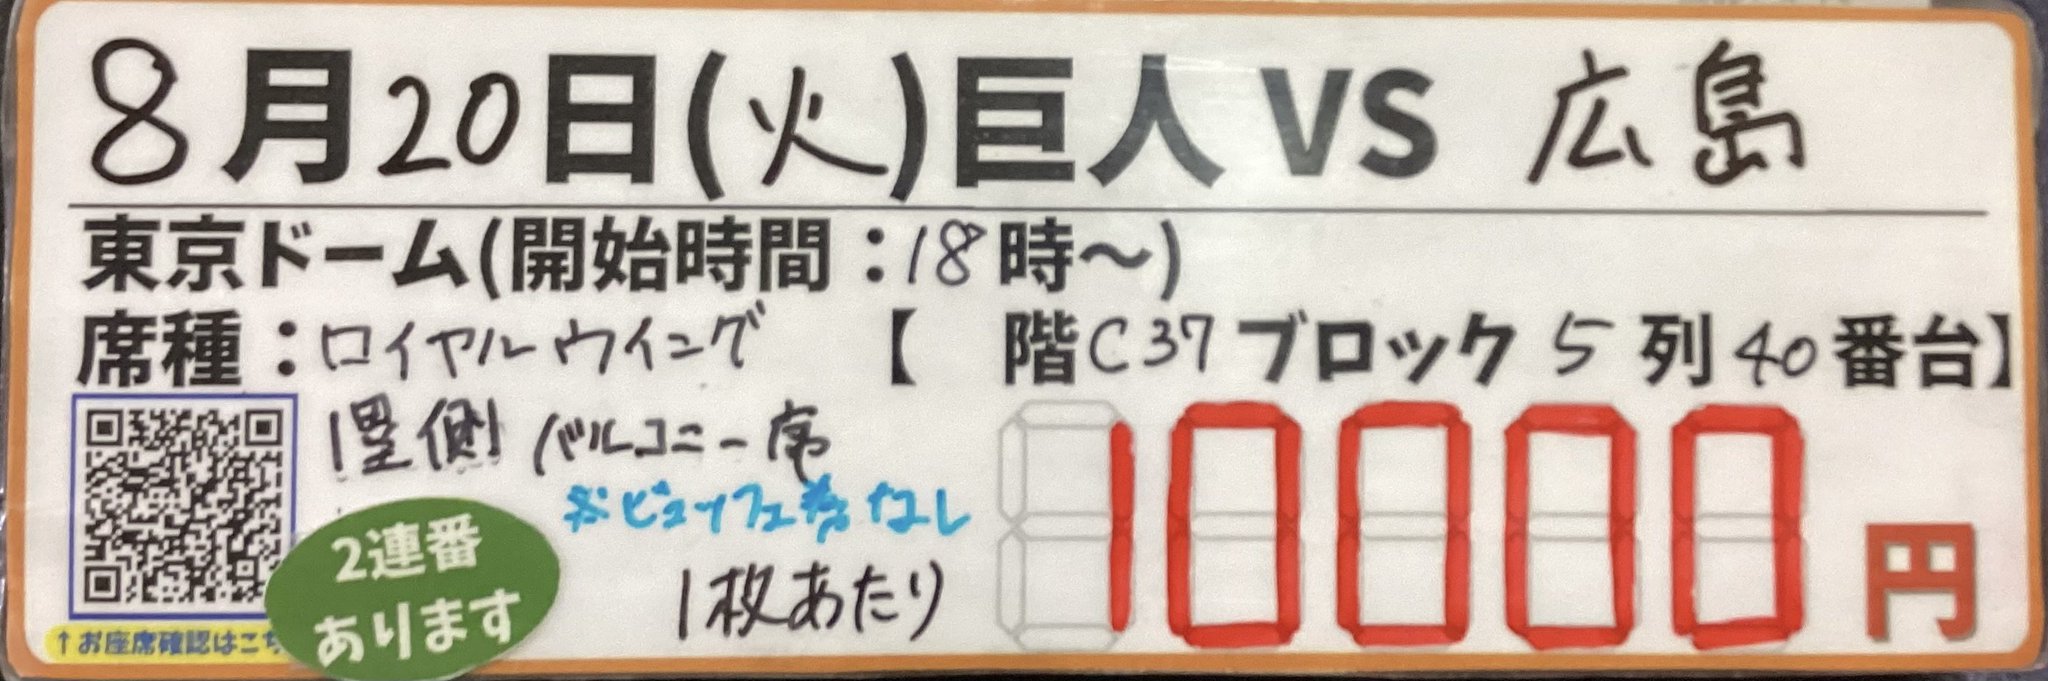 8月20日(火)巨人VS 広島
東京ドーム(開始時間：18時～)
席種：ロイヤルウイング 【 階C37ブロック5列40番台】
1塁側 バルコニー席
※ビュッフェ券なし
2連番
あります
1枚あたり
10000円
↑お座席確認はこち